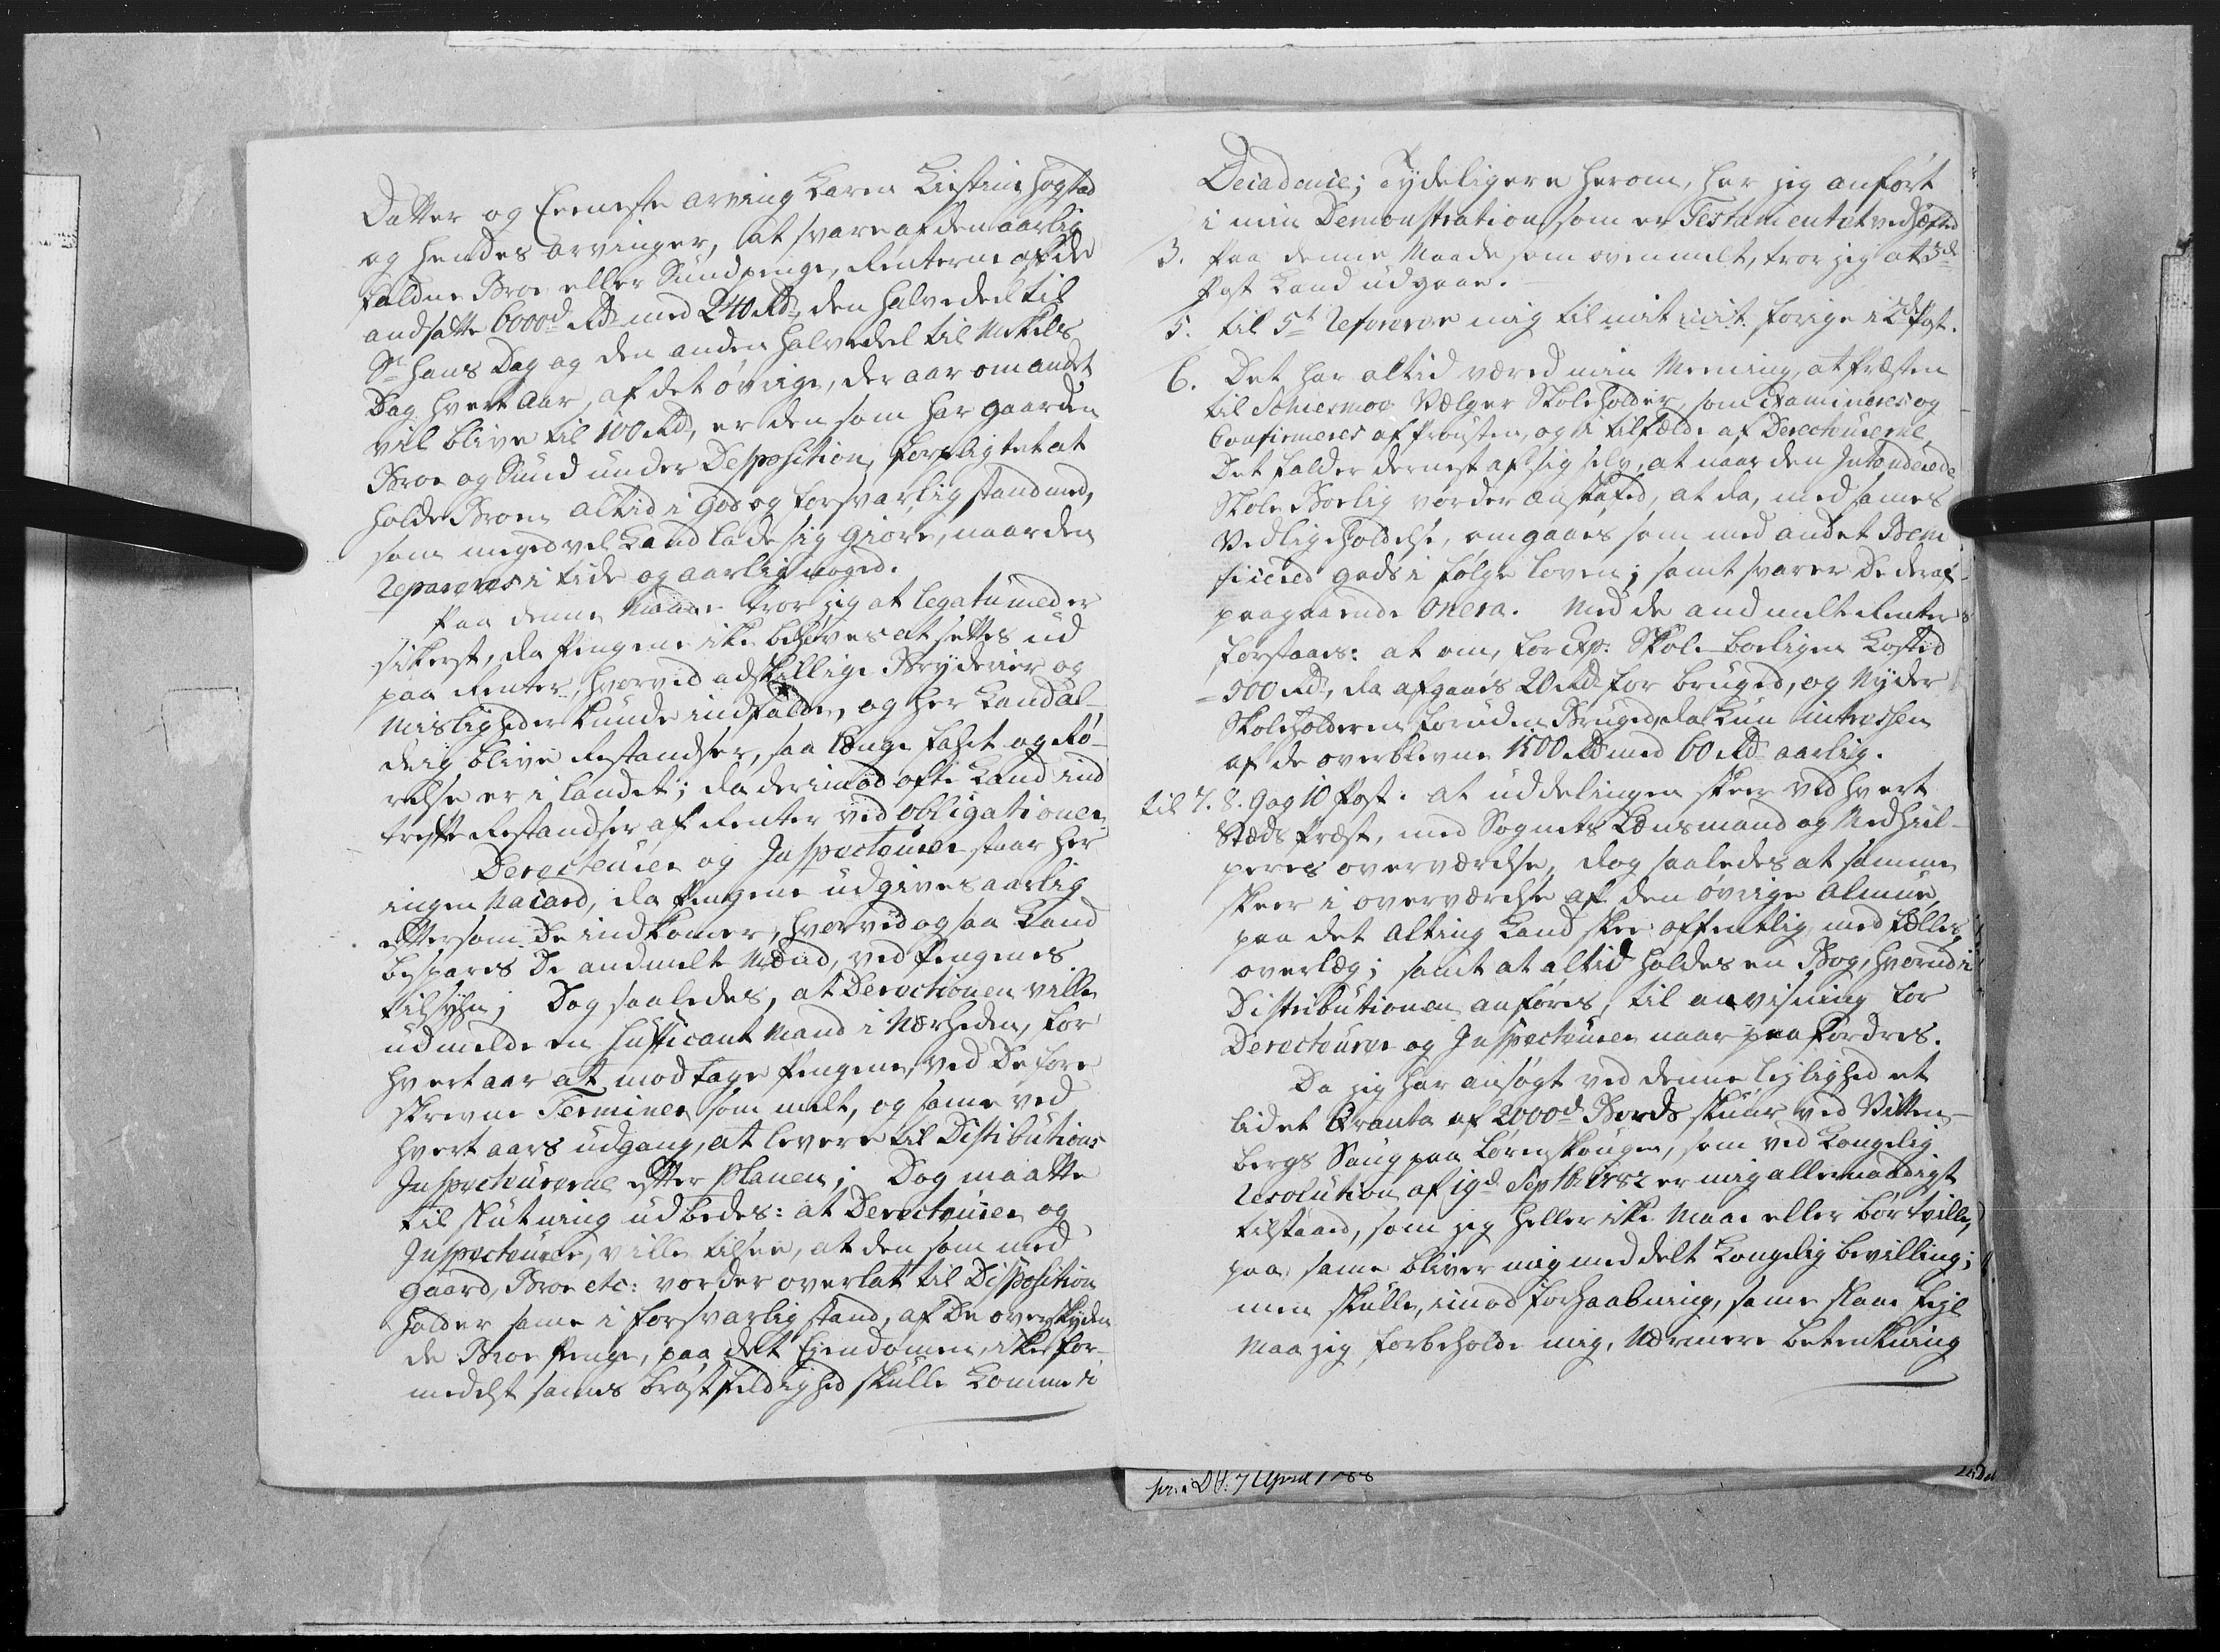 Datter og Eeneste arving Karen Kirstine Hogstad
og hendes arvinger, at svare af den aarlig
faldne Broe eller Sundpenge, Renterne af de
andsatte 6000d Rd med 240 Rd, den halvedeel til
St Hans Dag og den anden halvedeel til Mikels
Dag hvert Aar, af det øvrige, der aar om andet
vil blive til 100 Rd, er den som har gaarden
Broe og Sund under Desposition, forpligtet at
holde Broen altid i God og forsvarlig stand med,
som meged vel Kand lade sig giøre, naar den
Repareres i tide og aarlig noged.
Paa denne Maade tror jeg at legatumed er
sikerst, da Pengene ike behøves at settes ud
paa Renter, hvorved adskillige Bryderier og
Misligheder kunde indfalde, og her Kand al-
drig blive Restandser, saa længe fahrt og Rø-
relse er i landet; da derimod ofte Kand ind
treffe Restandser af Renter ved obligationer.
Derecteurer og Inspecteurer staar her
ingen Hacard, da Pengene udgives aarlig
eftersom De indkomer, hvorved ogsaa Kand
bespares De andmelte Mænd, ved Pengenes
tilsyhn; Dog saaledes, at Derectionen ville
udmelde en sufficant Mand i Nærheden, for
hvert aar at modtage Pengene, ved De fore
skrevne Terminer som melt, og same ved
hvert aars udgang, at levere til Distibutions
Inspecteurerne efter Planen; Dog maatte
til slutning udbedes: at Derecteurer og
Inspecteurer, ville tilsee, at den som med
gaard, Broe etc: vorder overlat til Disposition
holder same i forsvarlig stand, af De overskyden
de Broe Penge, paa det Ejendomen, ike for-
medelst sames brøstfeldighed skulle Komme i
Decadence; Tydeligere herom, har jeg anført
i min Demonstration som er Testamentet vedheftet
3. Paa denne Maade som ovenmelt, tror jeg at 3de
Post Kand udgaae.
5. til 5te Refererer mig til mit forige i 2d Post.
6. Det har altid væred min Meening, at Præsten
til Schiermoe Vælger Skoleholder, som Examineres og
Confirmeres af Prousten, og i tilfælde af Derecteurerne,
Det falder dernest af sig selv, at naar den Intenderede
Skole Boelig vorder anskafed, at da, med sames
Vedligeholdelse, omgaaes som med andet Bene
ficered gods i følge loven; samt svarer De deraf
paagaaende Onera. Med de andmelte Renter
forstaaes: at om, for Exp: Skole-boeligen Kosted
500 Rd, da afgaaes 20 Rd for bruged, og Nyder
Skoleholderen foruden Bruged, da Kun intressen
af de overblevne 1500 Rd med 60 Rd aarlig.
til 7. 8. 9 og 10 Post. at uddelingen skeer ved hvert
Stæds Præst, med Sognets Lænsmand og Medhiel-
peres overværelse, dog saaledes at samme
skeer i overværelse af den øvrige Almue,
paa det alting Kand skee offentlig med fælles
overlæg; samt at altid holdes en Bog, hvorudi
Distributionen anføres, til anvisning for
Derecteurer og Inspecteurer naar paafordres.
Da jeg har ansøgt ved denne lejlighed et
lidet Qvanta af 2000d Bords skuur ved Vitten-
bergs Saug paa Lørenskougen, som ved Kongelig
Resolution af 19d Septb 1782 er mig allernaadigst
tilstaaed, som jeg heller ike Maae eller bør tville,
paa same bliver mig meddelt Kongelig bevilling;
men skulle, imod forhaabning, same slaae feyl
Maa jeg forbeholde mig, Nærmere betenkning
skr. i D.H. 7 April 1788